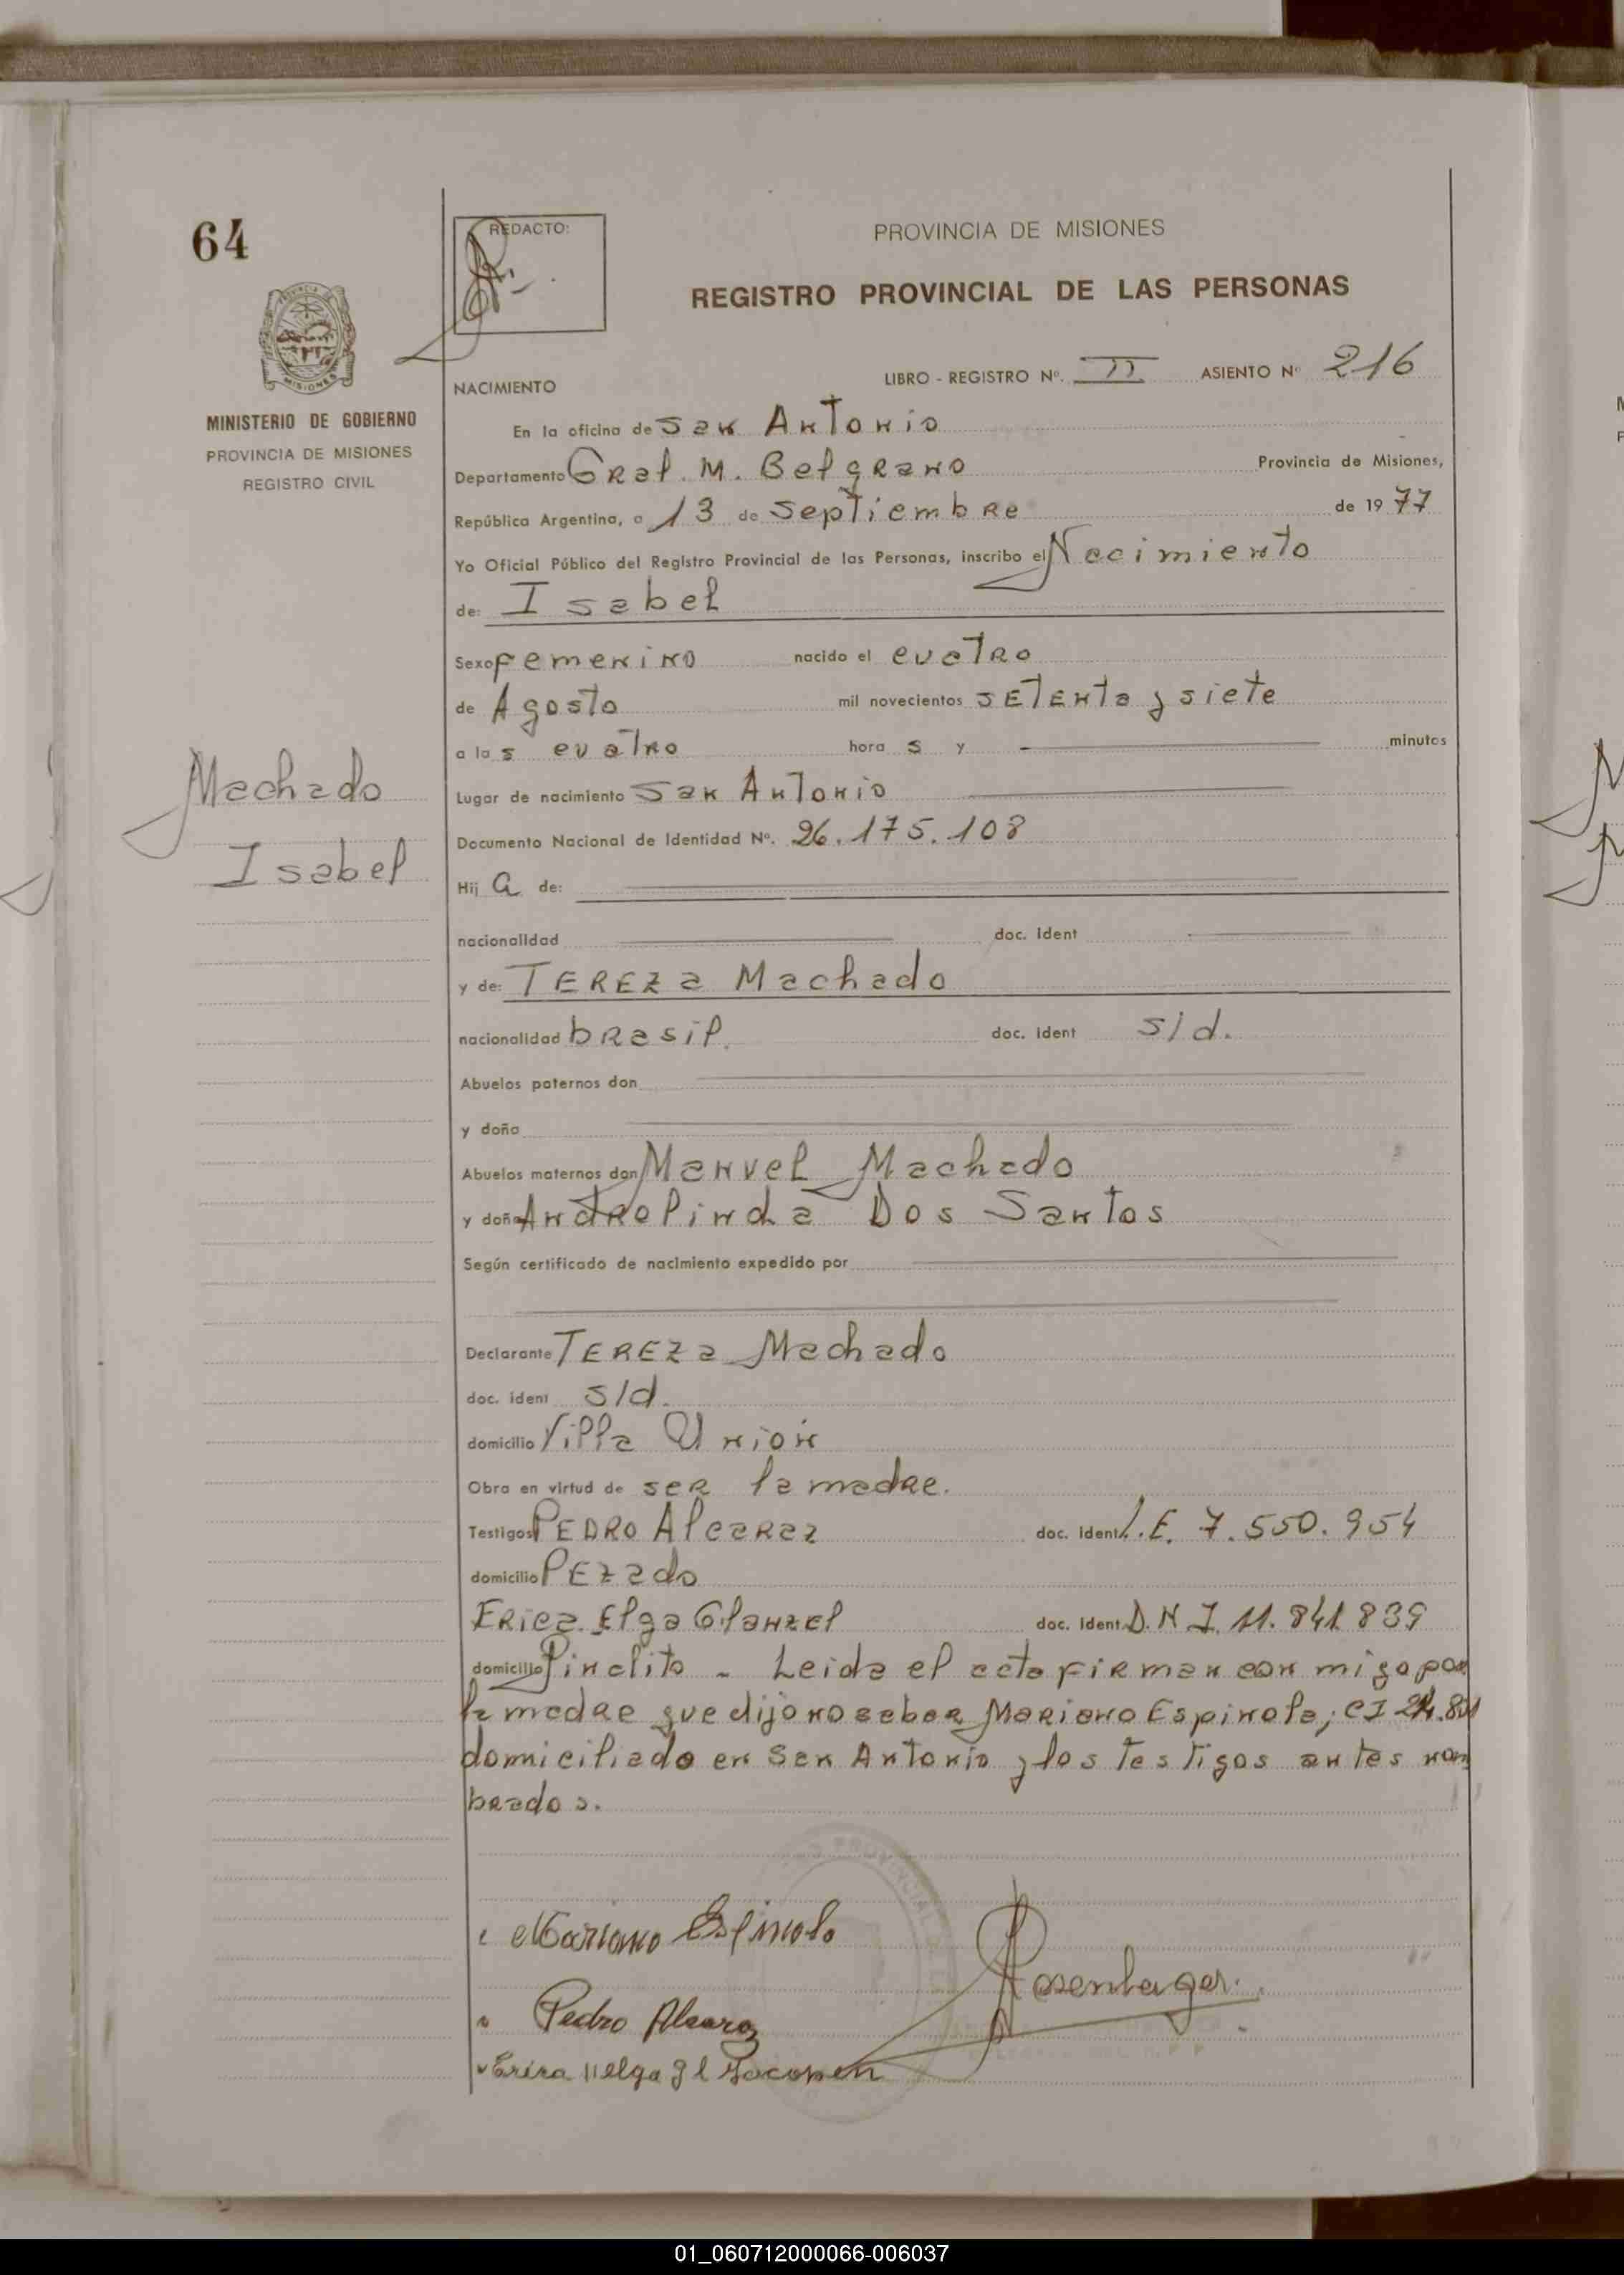 64
REDACTO:
PROVINCIA DE MISIONES
REGISTRO PROVINCIAL DE LAS PERSONAS
MISIONES
MINISTERIO DE GOBIERNO
PROVINCIA DE MISIONES
REGISTRO CIVIL
NACIMIENTO
LIBRO - REGISTRO Nº. II ASIENTO Nº 216
En la oficina de San Antonio
Departamento Gral. M. Belgrano Provincia de Misiones,
República Argentina, a 13 de Septiembre de 1977
Yo Oficial Público del Registro Provincial de las Personas, inscribo el Nacimiento
de: Isabel
Sexo Femenino nacido el cuatro
de Agosto mil novecientos SETENta y siete
a las cuatro horas y minutos
Machado
Isabel
Lugar de nacimiento San Antonio
Documento Nacional de Identidad Nº. 26.175.108
Hija de:
nacionalidad doc. ident
y de: TEREZa Machado
nacionalidad brasil. doc. ident s/d.
Abuelos paternos don
y doña
Abuelos maternos don Manuel Machado
y doña Androlinda Dos Santos
Según certificado de nacimiento expedido por
Declarante TEREZa Machado
doc. ident s/d.
domicilio Villa Unión
Obra en virtud de ser la madre.
Testigos PEDRO Alcaraz doc. ident L.E. 7.550.954
domicilio PEzado
Erica Elga Glanzel doc. ident D.N.I. 11.841.839
domicilio Pinalito - Leida el acta firman con migo por
la madre que dijo no saber Mariano Espinola, CI
domiciliado en San Antonio y los testigos antes nom
brados.
Mariano Espinola
Rosenbager.
Pedro Alcaraz
01_060712000066-006037